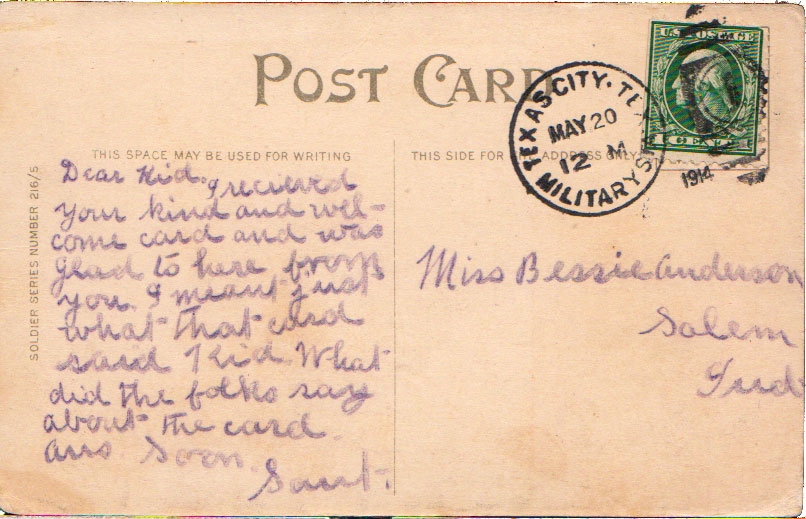 POST CARD
THIS SPACE MAY BE USED FOR WRITING
THIS SIDE FOR THE ADDRESS ONLY
SOLDIER SERIES NUMBER 216/5
TEXAS CITY. TE
MAY 20
12 M
MILITARY S
1914
U.S. POSTAGE
Dear Kid. I recieved
your kind and wel-
come card and was
glad to here from
you. I meant just
what that card
said Kid. What
did the folks say
about the card.
ans. Soon.
Miss Bessie Anderson
Salem
Ind